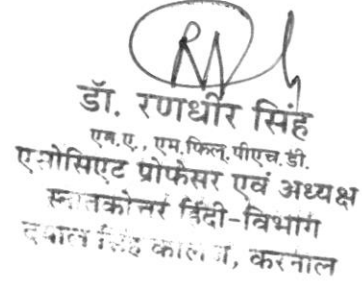 डॉ. रणधीर सिंह
एम.ए., एम.फिल्. पीएच.डी.
एसोसिएट प्रोफेसर एवं अध्यक्ष
स्नातकोत्तर हिंदी-विभाग
दयाल सिंह कालेज, करनाल